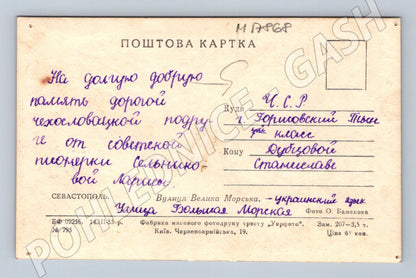 M 17868
ПОШТОВА КАРТКА
На долгую добрую
память дорогой
чехословацкой подру
ге от советской
пионерки Сельнико
вой Ларисы
Куди
Ч.С.Р
г. Горшовский Тын
класс
Кому Дубцовой
Станиславе
СЕВАСТОПОЛЬ. Вулиця Велика Морська. - украинский язык
Улица Большая Морская
Фото О. Баженова
БФ 09256. 14/III-55 р. Фабрика масового фотодруку тресту „Укрфото“. Зам. 207—3,5 т.
№ 793 Київ, Червоноармійська, 19. Ціна 65 коп.
POHLEDNICE GASH